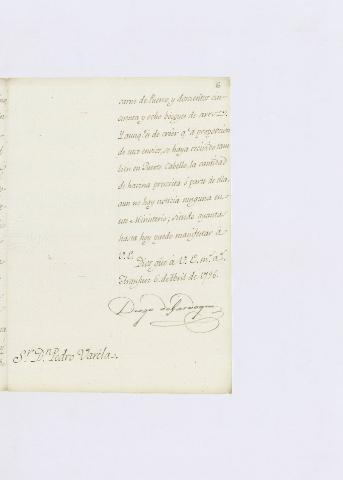 6
carne de Puerco, y doscientos cin-
cuenta y ocho bocoyes de arroz.
Y aunqe. es de creer qe. a proporcion
de esos envios, se haya recivido tam
bien en Puerto Cabello, la cantidad
de harina prescrita ó parte de ella,
aun no hay noticia ninguna en
este Ministerio; siendo quanto
hasta hoy puedo manifestar á
V.E.
Dios gue. á V.E. ms. as.
Aranjuez 6. de Abril de 1796.
Diego de Gardoqui
Sr. Dn. Pedro Varela.